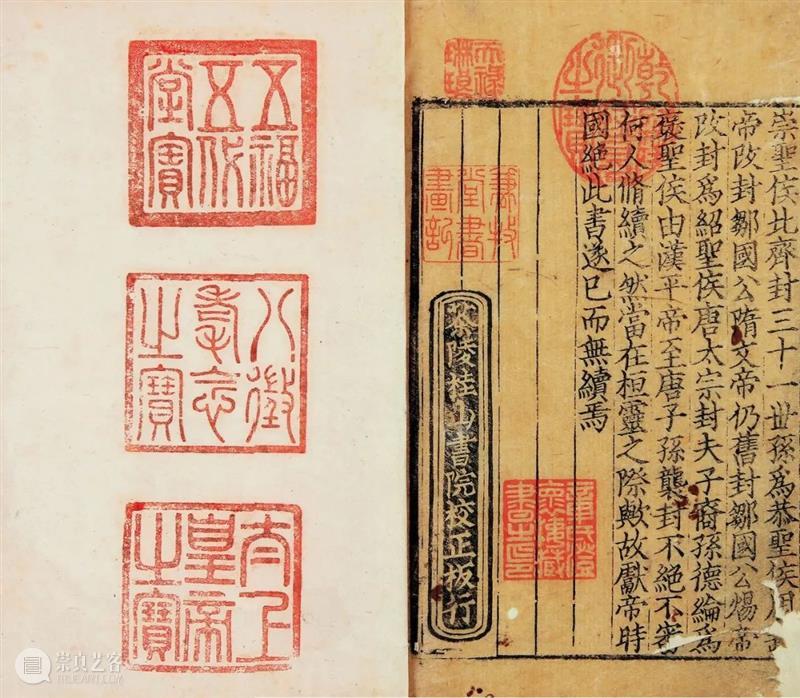 乾隆御覽之寶
天祿琳琅
崇聖侯北齊封三十一世孫爲恭聖侯周武
帝改封鄒國公隋文帝仍舊封鄒國公煬帝
改封爲紹聖侯唐太宗封夫子裔孫德綸爲
褒聖侯由漢平帝至唐子孫襲封不絕不審
何人脩續之然當在桓靈之際歟故獻帝時
國絕此書遂已而無續焉
兼牧堂書畫記
陵桂山書院校正板行
五福五代堂寶
八徵耄念之寶
太上皇帝之寶
崇真艺客